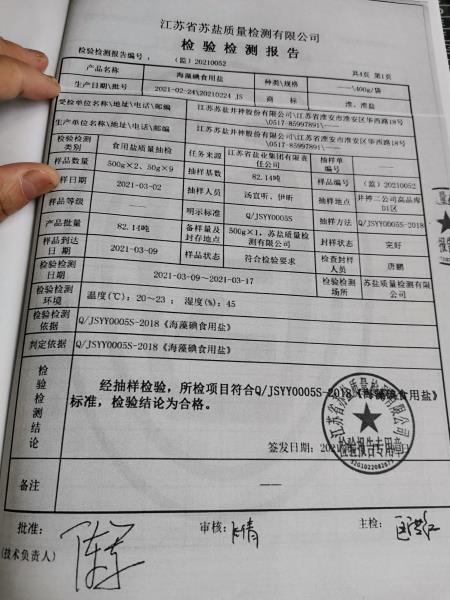 江苏省苏盐质量检测有限公司
检 验 检 测 报 告
检验检测报告编号：（监）20210052
共4页 第1页
产品名称 海藻碘食用盐 种类\规格 ——\400g/袋
生产日期\批号 2021-02-24\20210224 JS 商 标 淮、淮盐
受检单位名称\地址\电话\邮编 江苏苏盐井神股份有限公司\江苏省淮安市淮安区华西路18号\0517-85997891\——
生产单位名称\地址\电话\邮编 江苏苏盐井神股份有限公司\江苏省淮安市淮安区华西路18号\0517-85997891\——
检验检测类别 食用盐质量抽检 任务来源 江苏省盐业集团有限责任公司 抽样单编号 ——
样品数量 500g×2、50g×9 抽样基数 82.14吨 样品编号 （监）20210052
抽样日期 2021-03-02 抽样人员 汤宜昕、伊昕 抽样地点 井神二公司高品库D1区
样品等级 —— 明示标准 Q/JSYY0005S 抽样方法 Q/JSYY0005S-2018
产品批量 82.14吨 备样量及封存地点 500g×1，苏盐质量检测有限公司 封样状态 完好
样品到达日期 2021-03-09 样品状态 符合检验要求 检查封样人员 唐鹏
检验检测日期 2021-03-09～2021-03-17 检验检测场所 苏盐质量检测有限公司
检验检测环境 温度(℃)：20～23 ； 湿度(%)：45
检验检测依据 Q/JSYY0005S-2018《海藻碘食用盐》
判定依据 Q/JSYY0005S-2018《海藻碘食用盐》
检验检测结论 经抽样检验，所检项目符合Q/JSYY0005S-2018《海藻碘食用盐》
标准，检验结论为合格。
江苏省苏盐质量检测有限公司
签发日期：
检验报告专用章
备注 ——
批准： 审核： 主检：
(技术负责人)